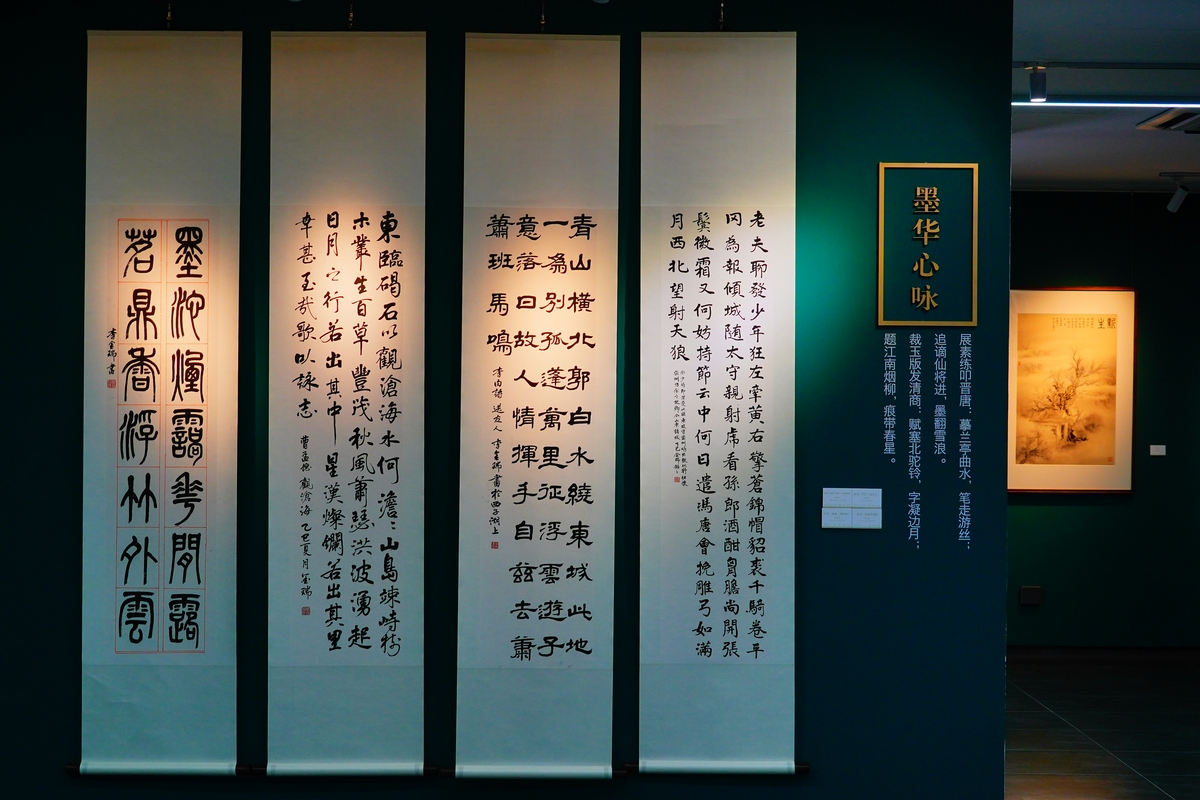 墨华心咏
展素练叩晋唐，摹兰亭曲水，笔走游丝；
追谪仙将进，墨翻雪浪。
裁玉版发清商，赋塞北驼铃，字凝边月；
题江南烟柳，痕带春星。
老夫聊發少年狂左牽黃右擎蒼錦帽貂裘千騎卷平
冈為報傾城随太守親射虎看孫郎酒酣胷膽尚開張
鬢微霜又何妨持節云中何日遣馮唐會挽雕弓如滿
月西北望射天狼
青山橫北郭白水繞東城此地
一為別孤蓬萬里征浮雲遊子
意落日故人情揮手自兹去蕭
蕭班馬鳴 李白詩 送友人 李金瑞書於西子湖上
東臨碣石以觀滄海水何澹〻山島竦峙樹
木叢生百草豐茂秋風蕭瑟洪波湧起
日月之行若出其中星漢燦爛若出其里
幸甚至哉歌以詠志 曹孟德 觀滄海 乙巳夏月金瑞
墨沱煙靄華間露
茗鼎香浮竹外雲
李金瑞書